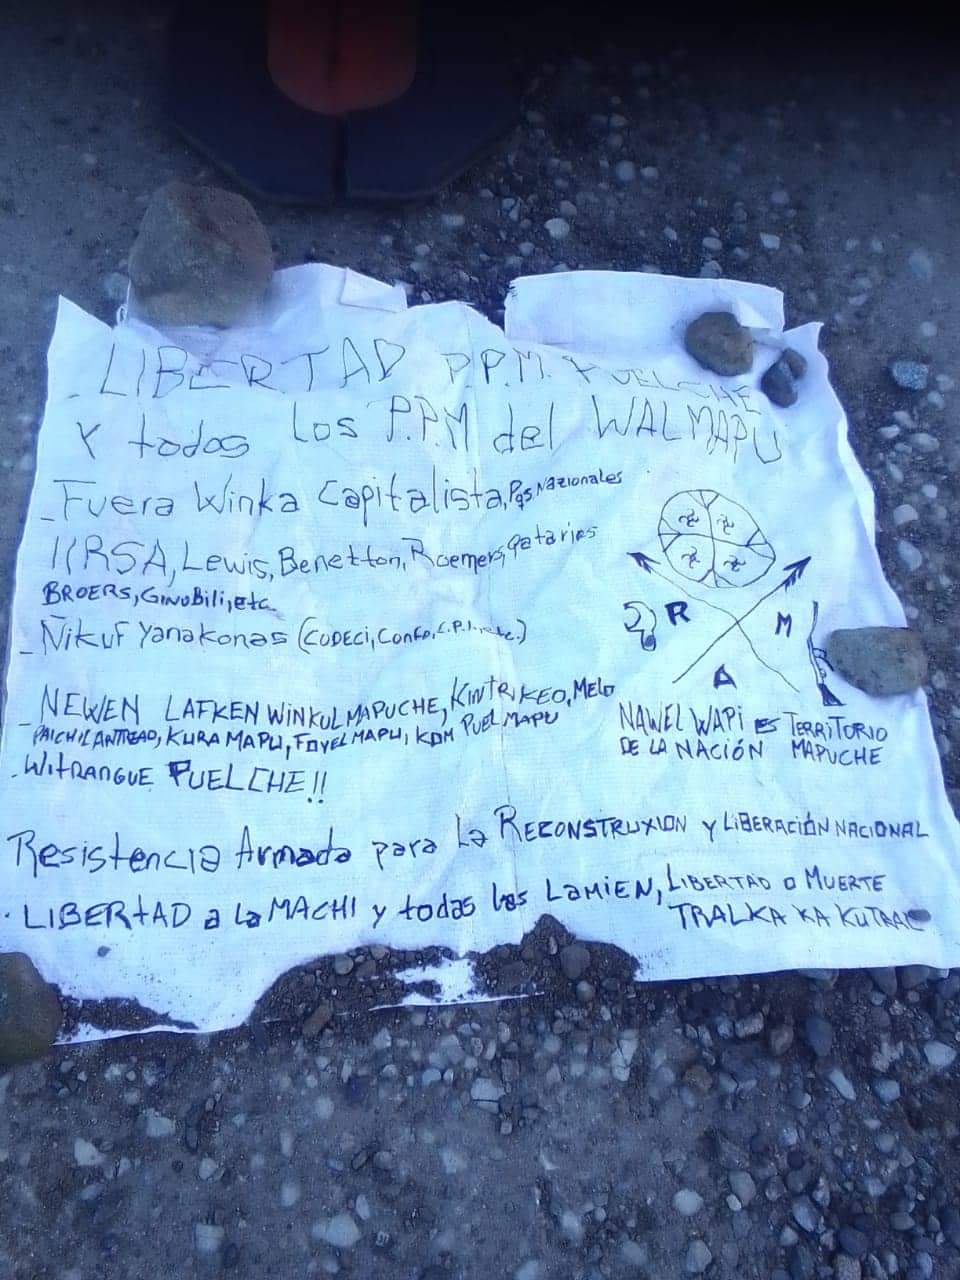 LIBERTAD P.P.M. PUELCHE
Y todos los P.P.M del WALMAPU
- Fuera Winka Capitalista, Pqs Nazionales
IIRSA, Lewis, Benetton, Roemers, qataries
BROERS, GinoBili, etc.
- Ñikuf Yanakonas (CODECI, Confo, C.P.I, etc.)
R M
A
NAWEL WAPI es TERRITORIO
DE LA NACIÓN MAPUCHE
- NEWEN LAFKEN WINKUL MAPUCHE, KINTRIKEO, MELO
PAICHIL ANTREAO, KURA MAPU, FOYEL MAPU, KOM PUEL MAPU
- WITRANGUE PUELCHE!!
Resistencia Armada para La RECONSTRUXION y LiBERACIÓN NACIONAL
· LIBERTAD a la MACHI y todas las LAMIEN, LIBERTAD O MUERTE
TRALKA KA KUTRAL